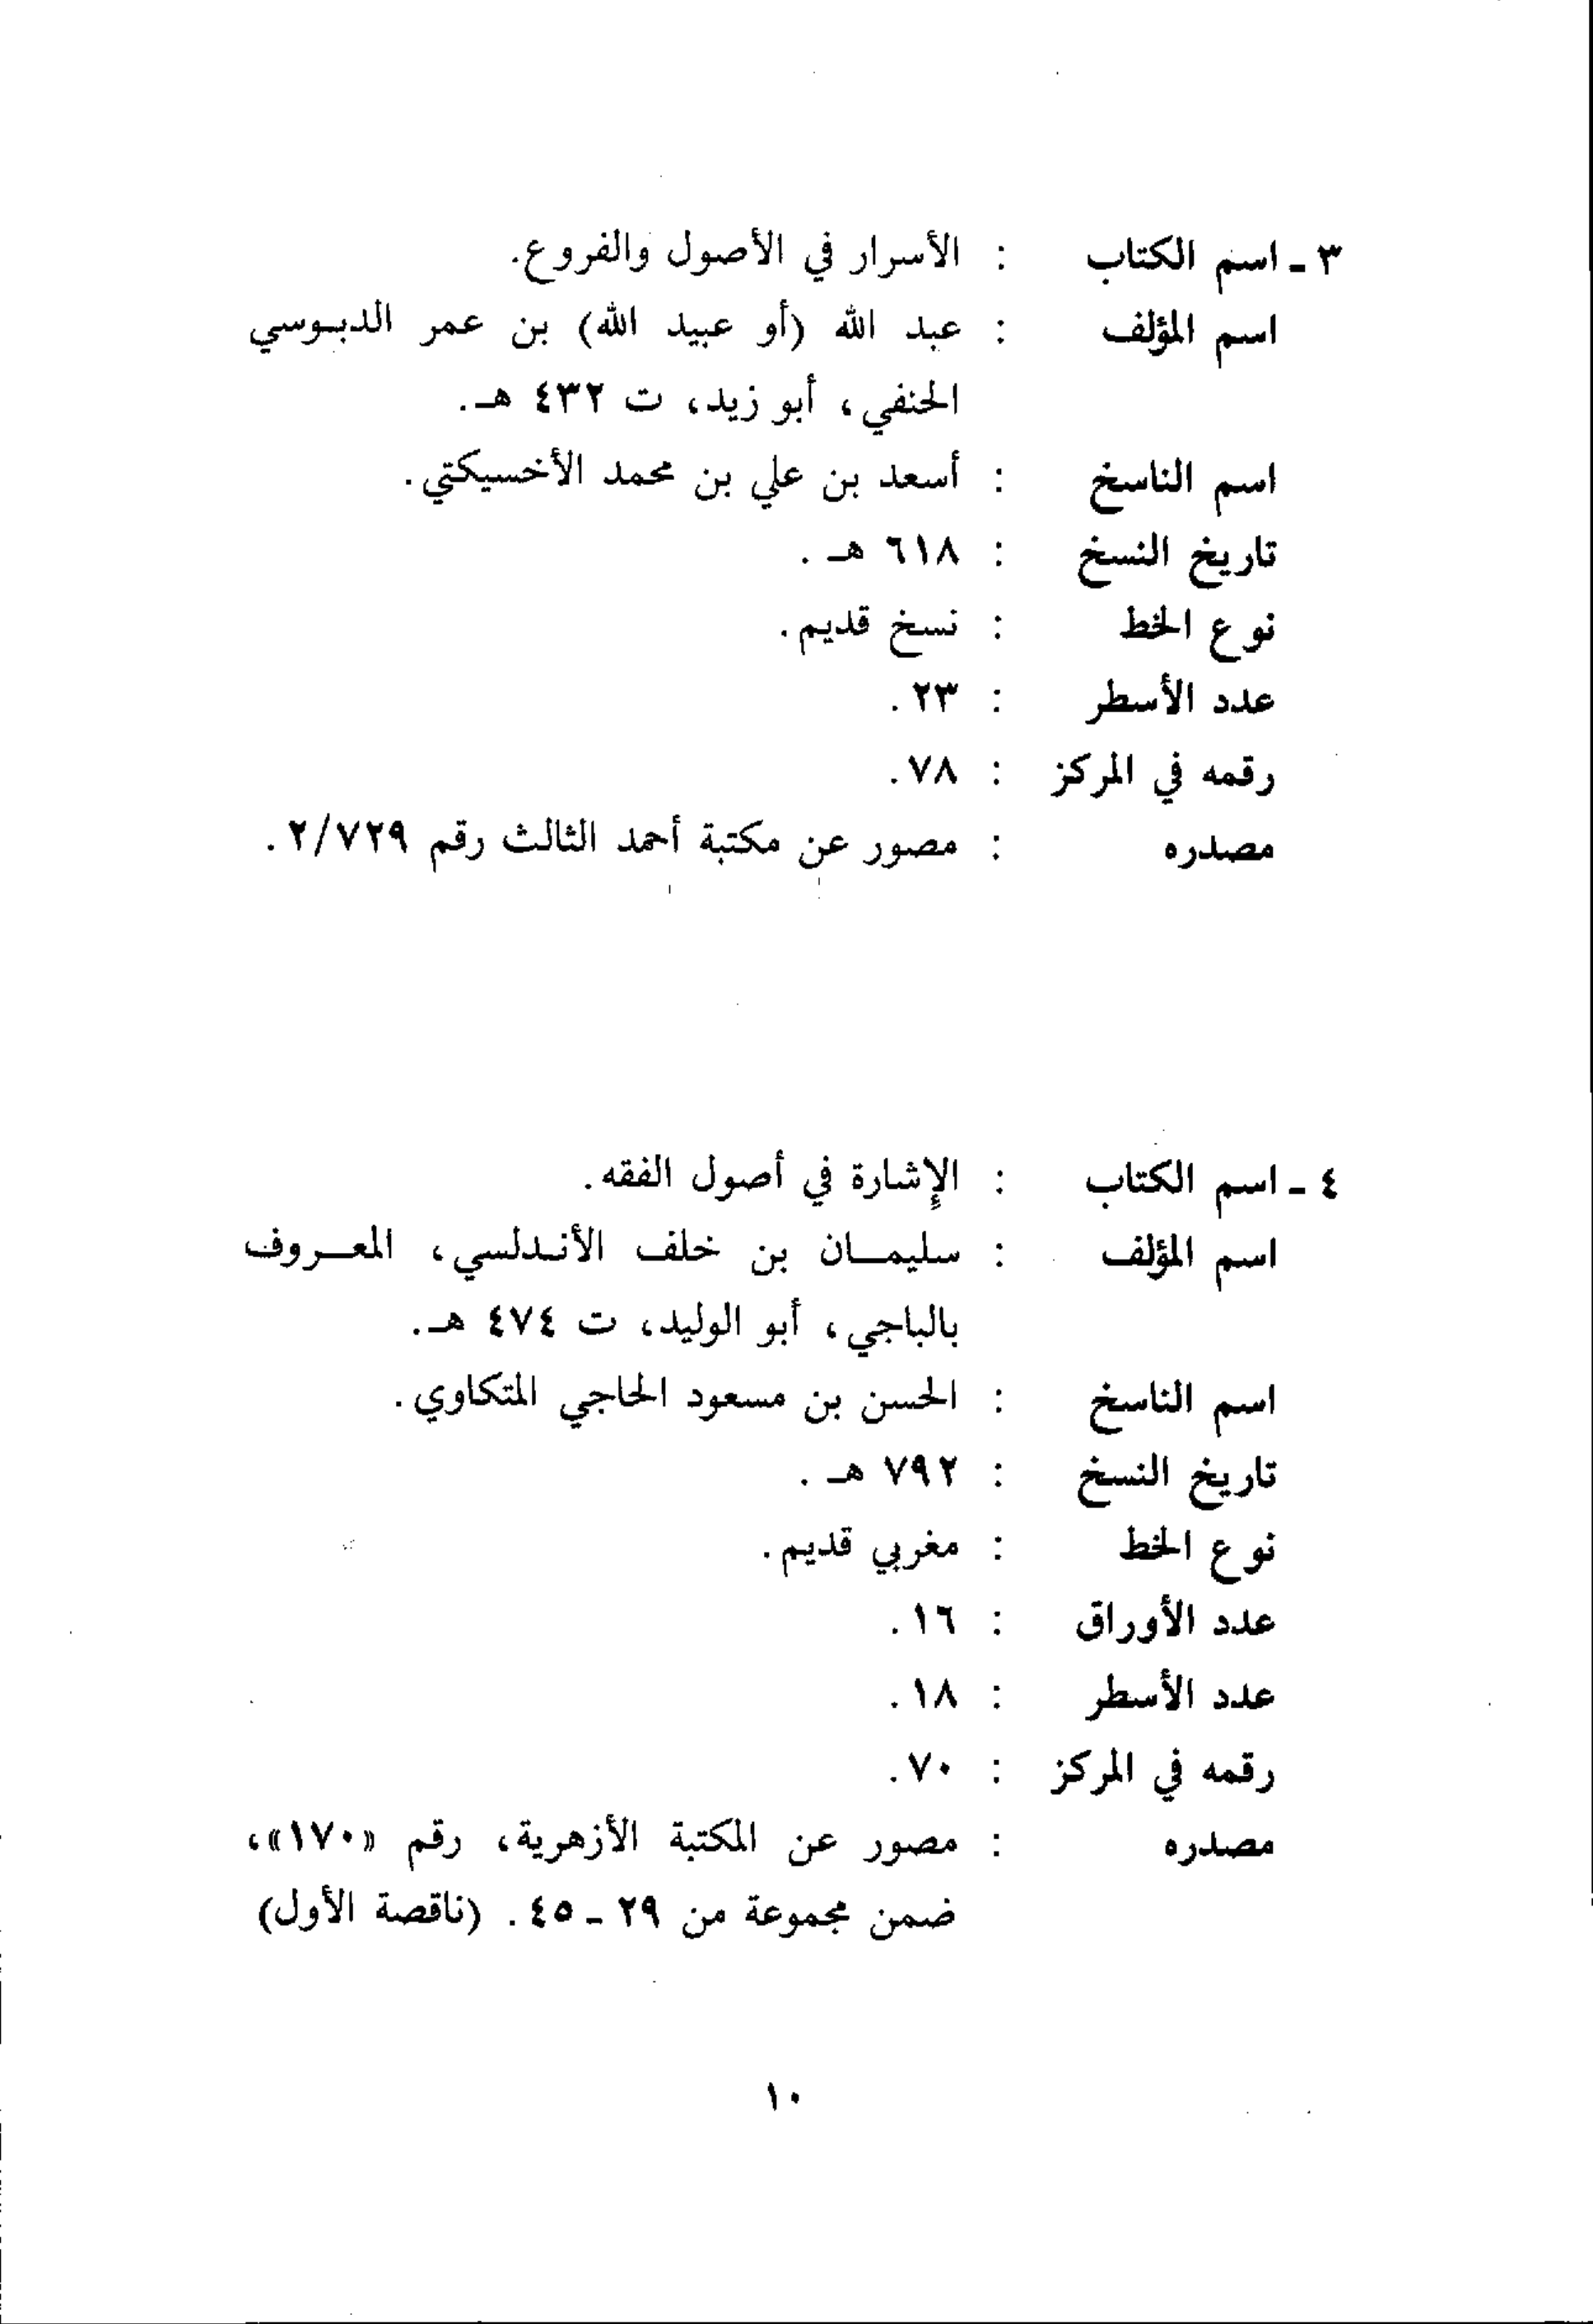 ٣ ـ اسم الكتاب : الأسرار في الأصول والفروع.
اسم المؤلف : عبد الله (أو عبيد الله) بن عمر الدبـوسي
الحنفي، أبو زيد، ت ٤٣٢ هـ.
اسم الناسخ : أسعد بن علي بن محمد الأخسيكتي.
تاريخ النسخ : ٦١٨ هـ.
نوع الخط : نسخ قديم.
عدد الأسطر : ٢٣.
رقمه في المركز : ٧٨.
مصدره : مصور عن مكتبة أحمد الثالث رقم ٢/٧٢٩.
٤ ـ اسم الكتاب : الإشارة في أصول الفقه.
اسم المؤلف : سليمـان بن خلف الأنـدلسي، المعـروف
بالباجي، أبو الوليد، ت ٤٧٤ هـ.
اسم الناسخ : الحسن بن مسعود الحاجي المتكاوي.
تاريخ النسخ : ٧٩٢ هـ.
نوع الخط : مغربي قديم.
عدد الأوراق : ١٦.
عدد الأسطر : ١٨.
رقمه في المركز : ٧٠.
مصدره : مصور عن المكتبة الأزهرية، رقم «١٧٠»،
ضمن مجموعة من ٢٩ ـ ٤٥. (ناقصة الأول)
١٠